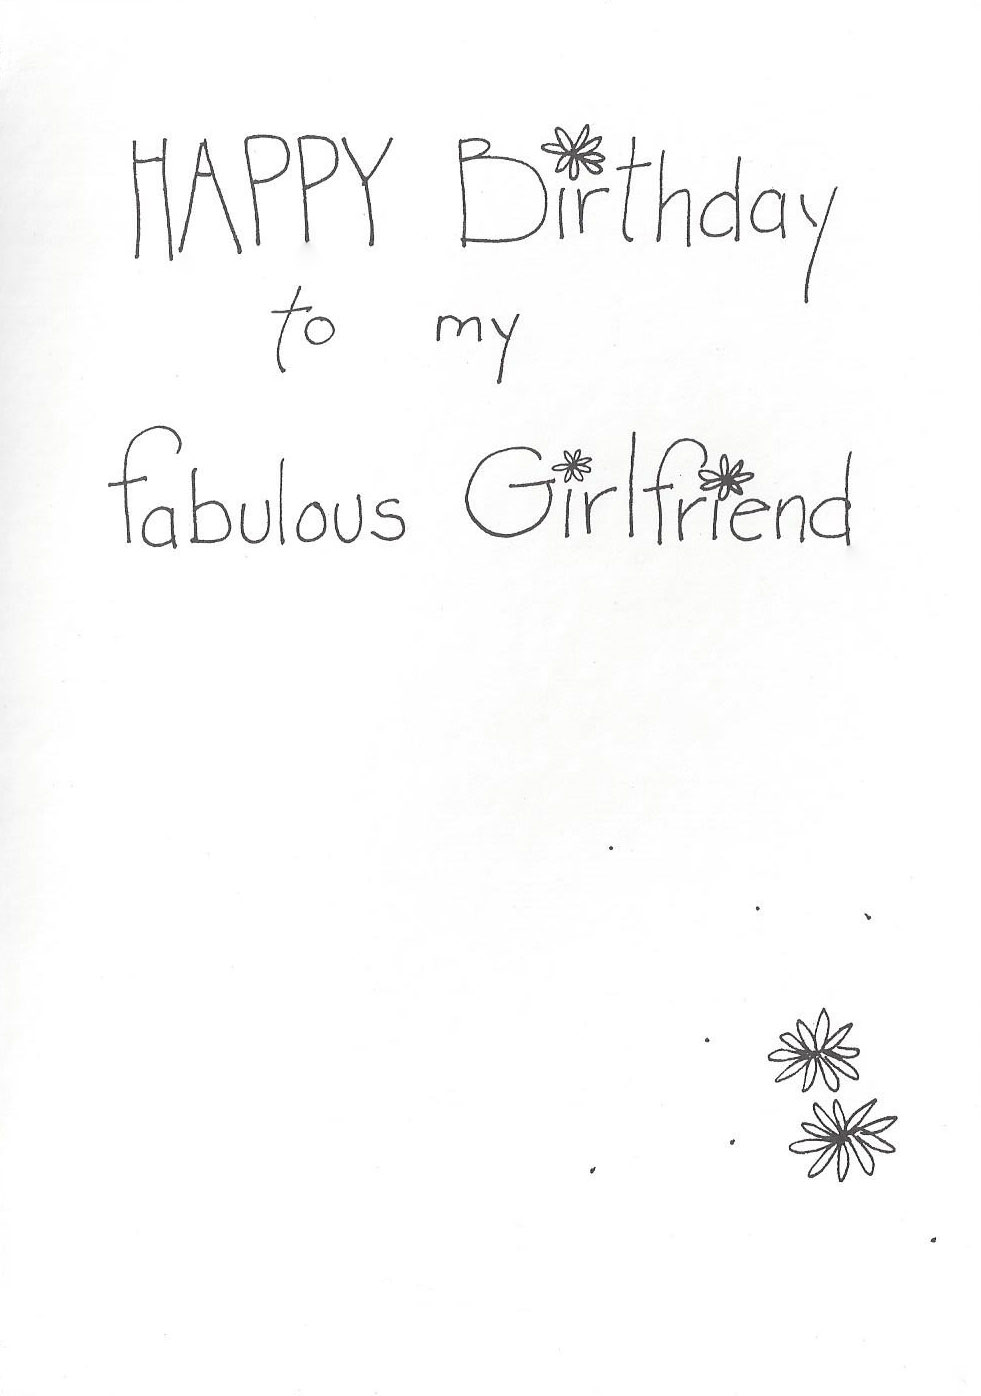 HAPPY Birthday
to my
fabulous Girlfriend